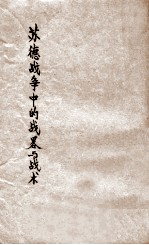 苏德战争中的战略与战术